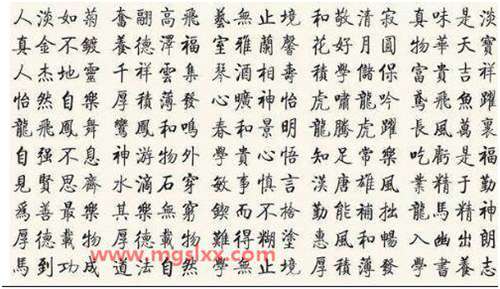 人淡如菊 奮翩高飛 藝無止境 和敬清寂 真味是淡
真金不鍍 養德澤福 室雅蘭馨 花好月圓 物華天寶
人杰地靈 千祥雲集 琴酒相壽 學儲保 富貴吉祥
怡然自樂 厚積薄發 心曠神怡 虎嘯龍吟 鳶飛魚躍
龍飛鳳舞 鸞鳳和鳴 春和景明 龍騰虎躍 長風萬裏
自强不息 神游物外 學貴心悟 知足常樂 吃虧是福
見賢思齊 水滴石穿 敏事慎言 漢唐雄風 業精于勤
爲善最樂 其樂無窮 鍥而不捨 勤能補拙 龍馬精神
厚德載物 厚德載物 難得糊塗 惠風和暢 入幽出朗
馬到功成 道法自然 學無止境 厚積薄發 學書養志
www.mgslxx.com